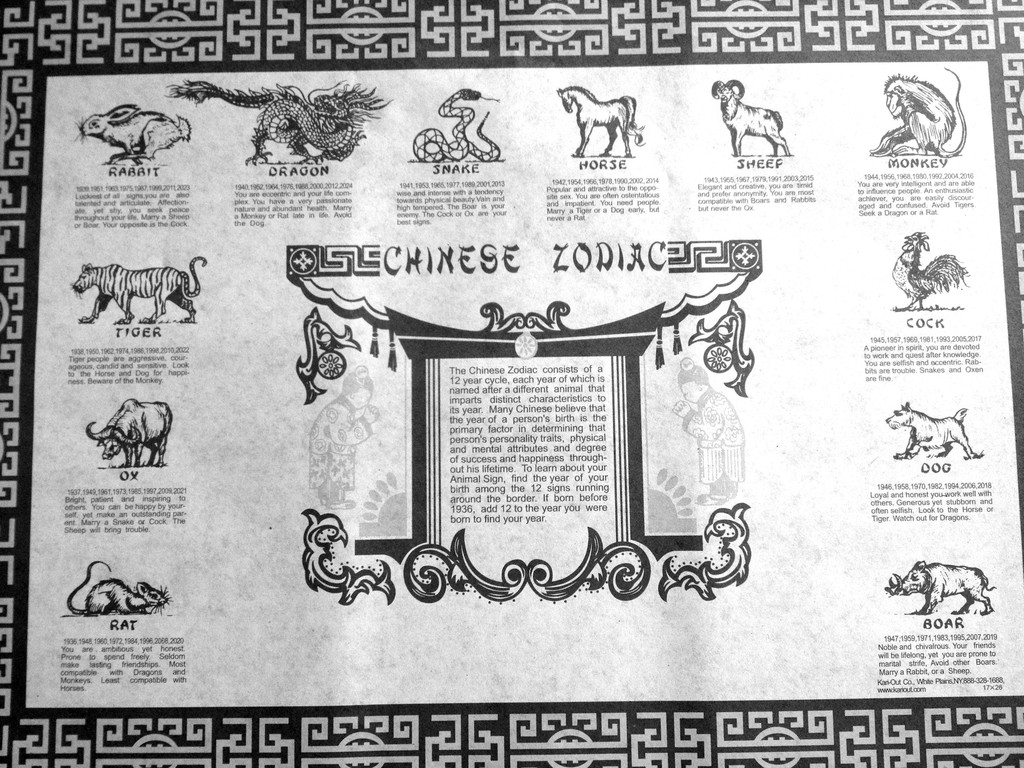 RABBIT
1939,1951,1963,1975,1987,1999,2011,2023
Luckiest of all signs,you are also
talented and articulate. Affection-
ate, yet shy, you seek peace
throughout your life. Marry a Sheep
or Boar. Your opposite is the Cock.
DRAGON
1940,1952,1964,1976,1988,2000,2012,2024
You are eccentric and your life com-
plex. You have a very passionate
nature and abundant health. Marry
a Monkey or Rat late in life. Avoid
the Dog.
SNAKE
1941,1953,1965,1977,1989,2001,2013
wise and intense with a tendency
towards physical beauty Vain and
high tempered. The Boar is your
enemy. The Cock or Ox are your
best signs.
HORSE
1942,1954,1966,1978,1990,2002,2014
Popular and attractive to the oppo-
site sex. You are often ostentatious
and impatient. You need people.
Marry a Tiger or a Dog early, but
never a Rat.
SHEEP
1943,1955,1967,1979,1991,2003,2015
Elegant and creative, you are timid
and prefer anonymity. You are most
compatible with Boars and Rabbits
but never the Ox.
MONKEY
1944,1956,1968,1980,1992,2004,2016
You are very intelligent and are able
to influence people. An enthusiastic
achiever, you are easily discour-
aged and confused. Avoid Tigers.
Seek a Dragon or a Rat.
CHINESE ZODIAC
TIGER
1938,1950,1962,1974,1986,1998,2010,2022
Tiger people are aggressive, cour-
ageous, candid and sensitive. Look
to the Horse and Dog for happi-
ness. Beware of the Monkey.
COCK
1945,1957,1969,1981,1993,2005,2017
A pioneer in spirit, you are devoted
to work and quest after knowledge.
You are selfish and eccentric. Rab-
bits are trouble. Snakes and Oxen
are fine.
The Chinese Zodiac consists of a
12 year cycle, each year of which is
named after a different animal that
imparts distinct characteristics to
its year. Many Chinese believe that
the year of a person's birth is the
primary factor in determining that
person's personality traits, physical
and mental attributes and degree
of success and happiness through-
out his lifetime. To learn about your
Animal Sign, find the year of your
birth among the 12 signs running
around the border. If born before
1936, add 12 to the year you were
born to find your year.
OX
1937,1949,1961,1973,1985,1997,2009,2021
Bright, patient and inspiring to
others. You can be happy by your-
self, yet make an outstanding par-
ent. Marry a Snake or Cock. The
Sheep will bring trouble.
DOG
1946,1958,1970,1982,1994,2006,2018
Loyal and honest you work well with
others. Generous yet stubborn and
often selfish. Look to the Horse or
Tiger. Watch out for Dragons.
RAT
1936,1948,1960,1972,1984,1996,2008,2020
You are ambitious yet honest.
Prone to spend freely. Seldom
make lasting friendships. Most
compatible with Dragons and
Monkeys. Least compatible with
Horses.
BOAR
1947,1959,1971,1983,1995,2007,2019
Noble and chivalrous. Your friends
will be lifelong, yet you are prone to
marital strife, Avoid other Boars.
Marry a Rabbit, or a Sheep.
Kari-Out Co., White Plains,NY.888-328-1688,
www.kariout.com 17×26